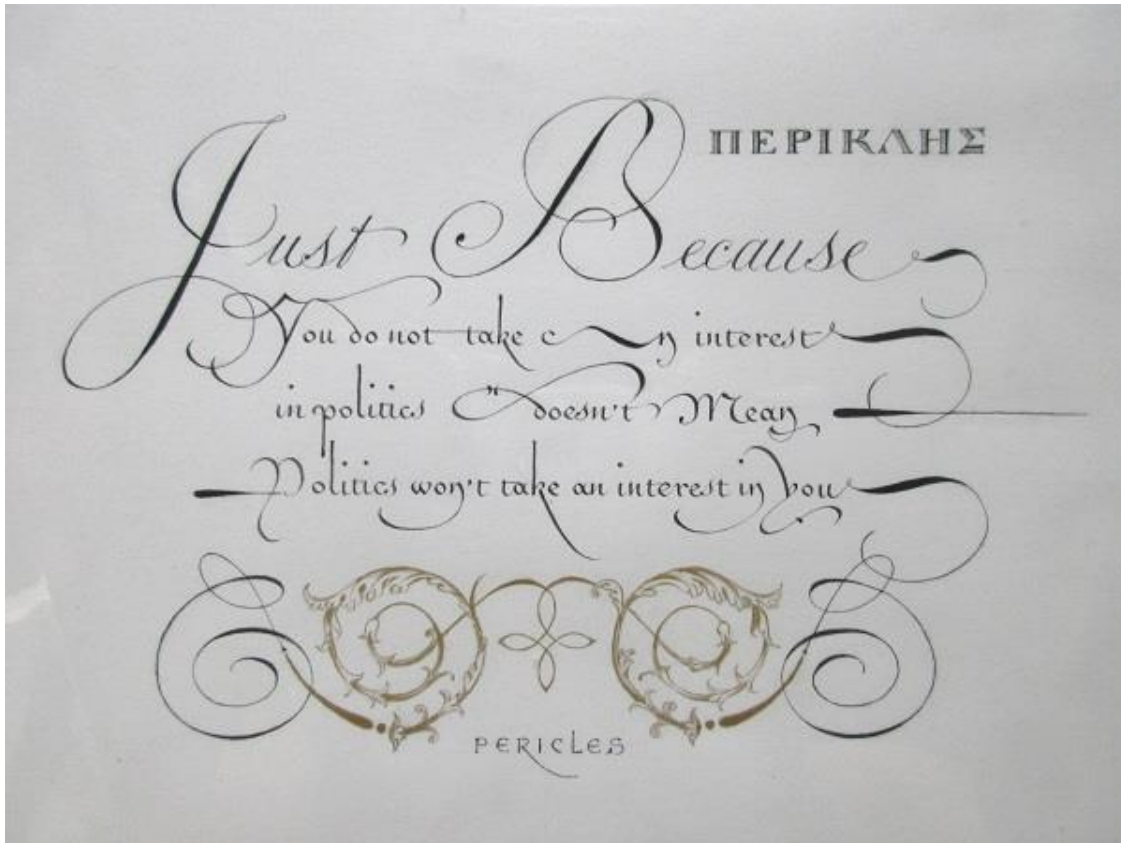 ΠΕΡΙΚΛΗΣ
Just Because
You do not take an interest
in politics doesn't Mean
Politics won't take an interest in you
PERICLES